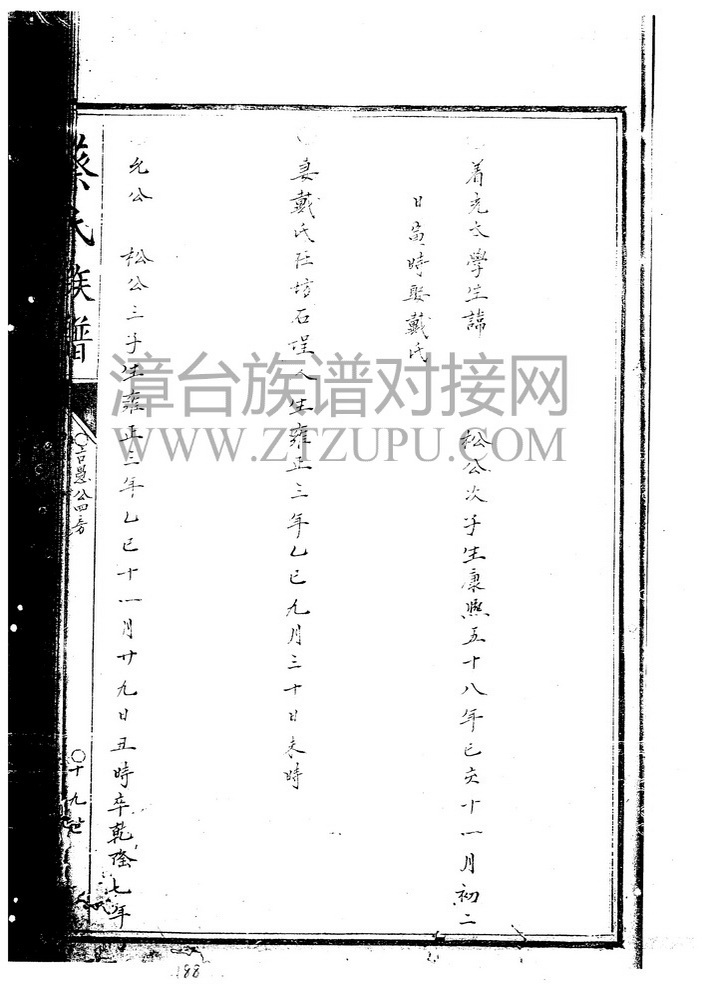 着充太學生諱　松公次子生康熙五十八年己亥十一月初二
日寅時娶戴氏
妻戴氏在坊石埕人生雍正三年乙巳九月三十日未時
允公　松公三子生雍正三年乙巳十一月廿九日丑時卒乾隆七年
蔡氏族譜
公四房
十九世
漳台族谱对接网
WWW.ZTZUPU.COM
188